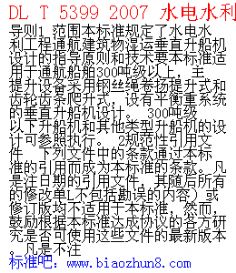 DL T 5399 2007 水电水利
导则1 范围本标准规定了水电水
利工程通航建筑物湿运垂直升船机
设计的指导原则和技术要本标准适
用于通航船舶300吨级以上,主
提升设备采用钢丝绳卷扬提升式和
齿轮齿条爬升式,设有平衡重系统
的垂直升船机设计。 300吨级
以下升船机和其他类型升船机的设
计可参照执行。 2规范性引用文
件 下列文件中的条款通过本标
准的引用而成为本标准的条款。凡
是注日期的引用文件,其随后所有
的修改单L不包括勘误的内容)或
修订版均不适用于本标准,然而,
鼓励根据本标准达成协议的各方研
究是否可使用这些文件的最新版本
。凡是不注
标准吧:www.biaozhun8.com